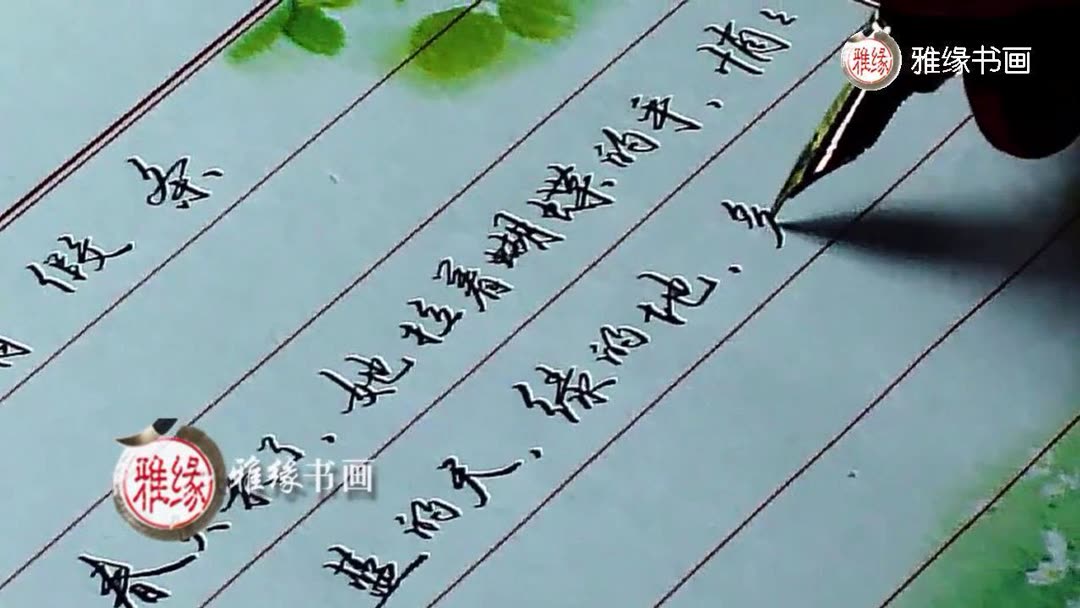 雅缘 雅缘书画
假条
春 了、她拉着蝴蝶的手、悄悄
蓝的天、绿的地、
雅缘 雅缘书画